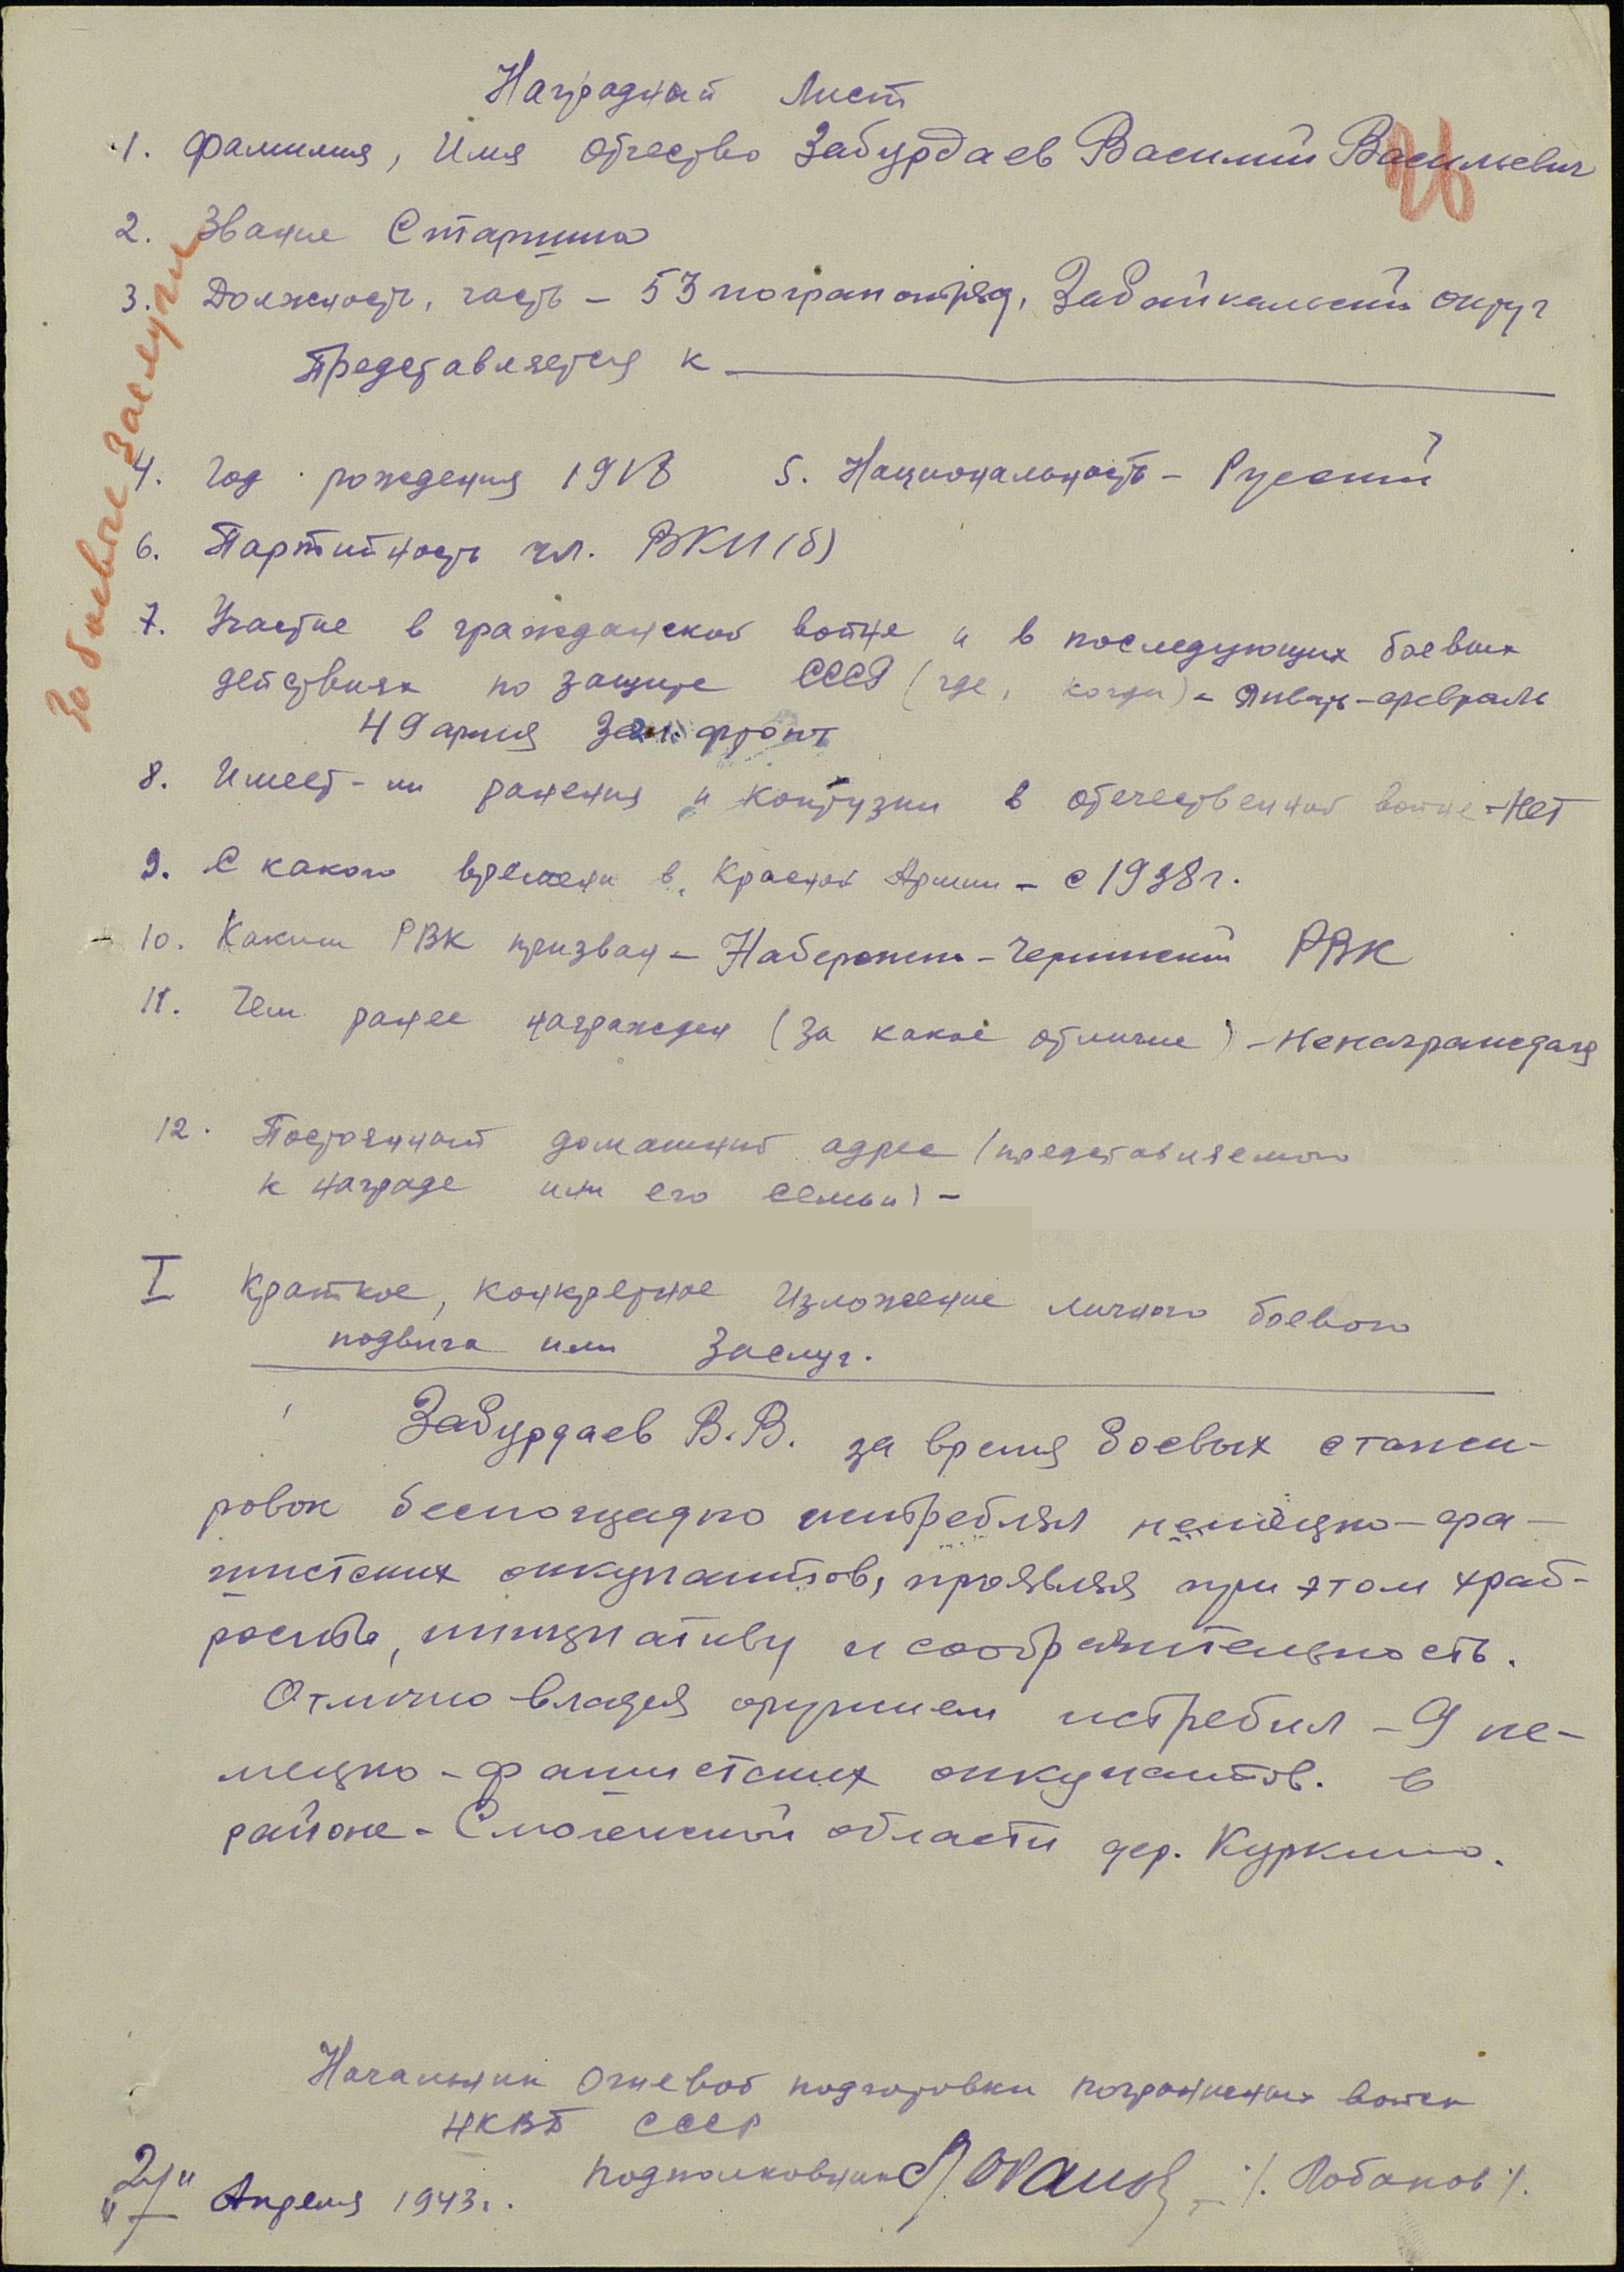 Наградной Лист
1. Фамилия, Имя отчество Забурдаев Василий Васильевич
26
2. Звание Старшина
3. Должность, часть – 53 погранотряд, Забайкальский округ
Представляется к
За боевые заслуги
4. Год рождения 1918 5. Национальность – Русский
6. Партийность чл. ВКП(б)
7. Участие в гражданской войне и в последующих боевых
действиях по защите СССР (где, когда) – Январь-февраль
49 армия Зап. фронт
8. Имеет-ли ранения и контузии в отечественной войне – Нет
9. С какого времени в Красной Армии – с 1938 г.
10. Каким РВК призван – Набережно-Челнинский РВК
11. Чем ранее награжден (за какое отличие) – ненаграждался
12. Постоянный домашний адрес (представляемого
к награде или его семьи) –
I Краткое, конкретное изложение личного боевого
подвига или заслуг.
Забурдаев В.В. за время боевых стажи-
ровок беспощадно истреблял немецко-фа-
шистских оккупантов, проявляя при этом храб-
рость, инициативу и сообразительность.
Отлично владея оружием истребил – 9 не-
мецко-фашистских оккупантов. в
районе – Смоленской области дер. Куркино.
Начальник Огневой подготовки пограничных войск
НКВД СССР
подполковник /. Лобанов /.
Апреля 1943 г.